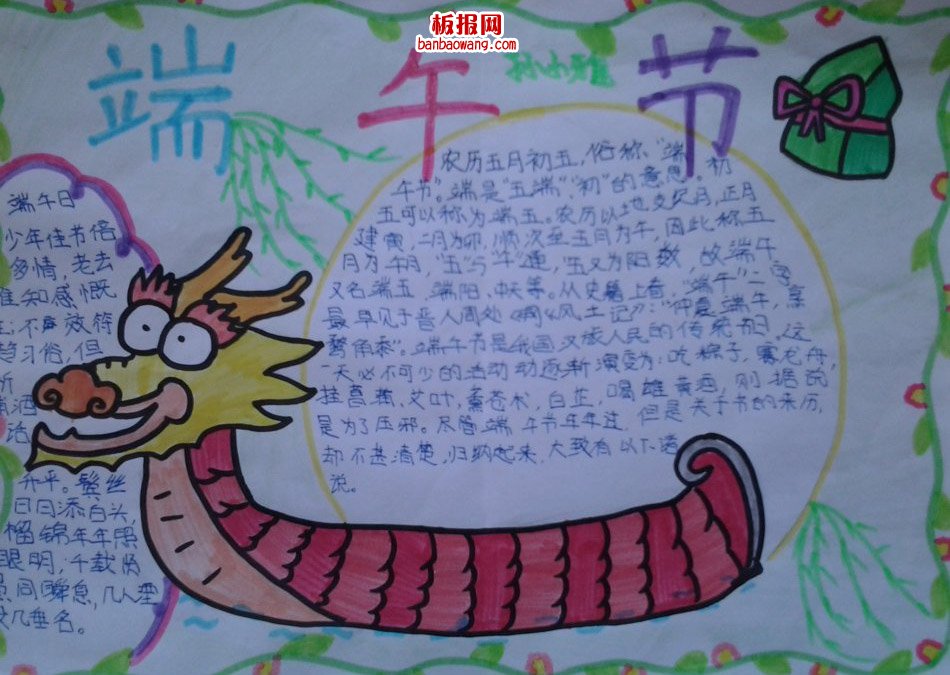 板报网
banbaowang.com
端午节
孙小雅
农历五月初五，俗称"端
午节"。端是"五端""初"的意思。初
五可以称为端五。农历以地支纪月，正月
建寅，二月为卯，顺次至五月为午，因此称五
月为午月，"五"与"午"通，"五又为阳数，故端午
又名端五、端阳、中天等。从史籍上看，"端午"一字
最早见于晋人周处《风土记》："仲夏端午，烹
鹜角黍"。端午节是我国汉族人民的传统节日。这
一天必不可少的活动动逐渐演变为：吃粽子，赛龙舟，
挂菖蒲、艾叶，薰苍术，白芷，喝雄黄酒，则据说
是为了压邪。尽管端午节年年过，但是关于节的来历，
却不甚清楚，归纳起来，大致有以下诸
说。
端午日
少年佳节倍
多情，老去
谁知感慨
生；不声效符
趋习俗，但
祈
酒
治
升平。鬓丝
日日添白头，
榴锦年年照
眼明，千载贤
愚同瞬息，几人垂
没几垂名。